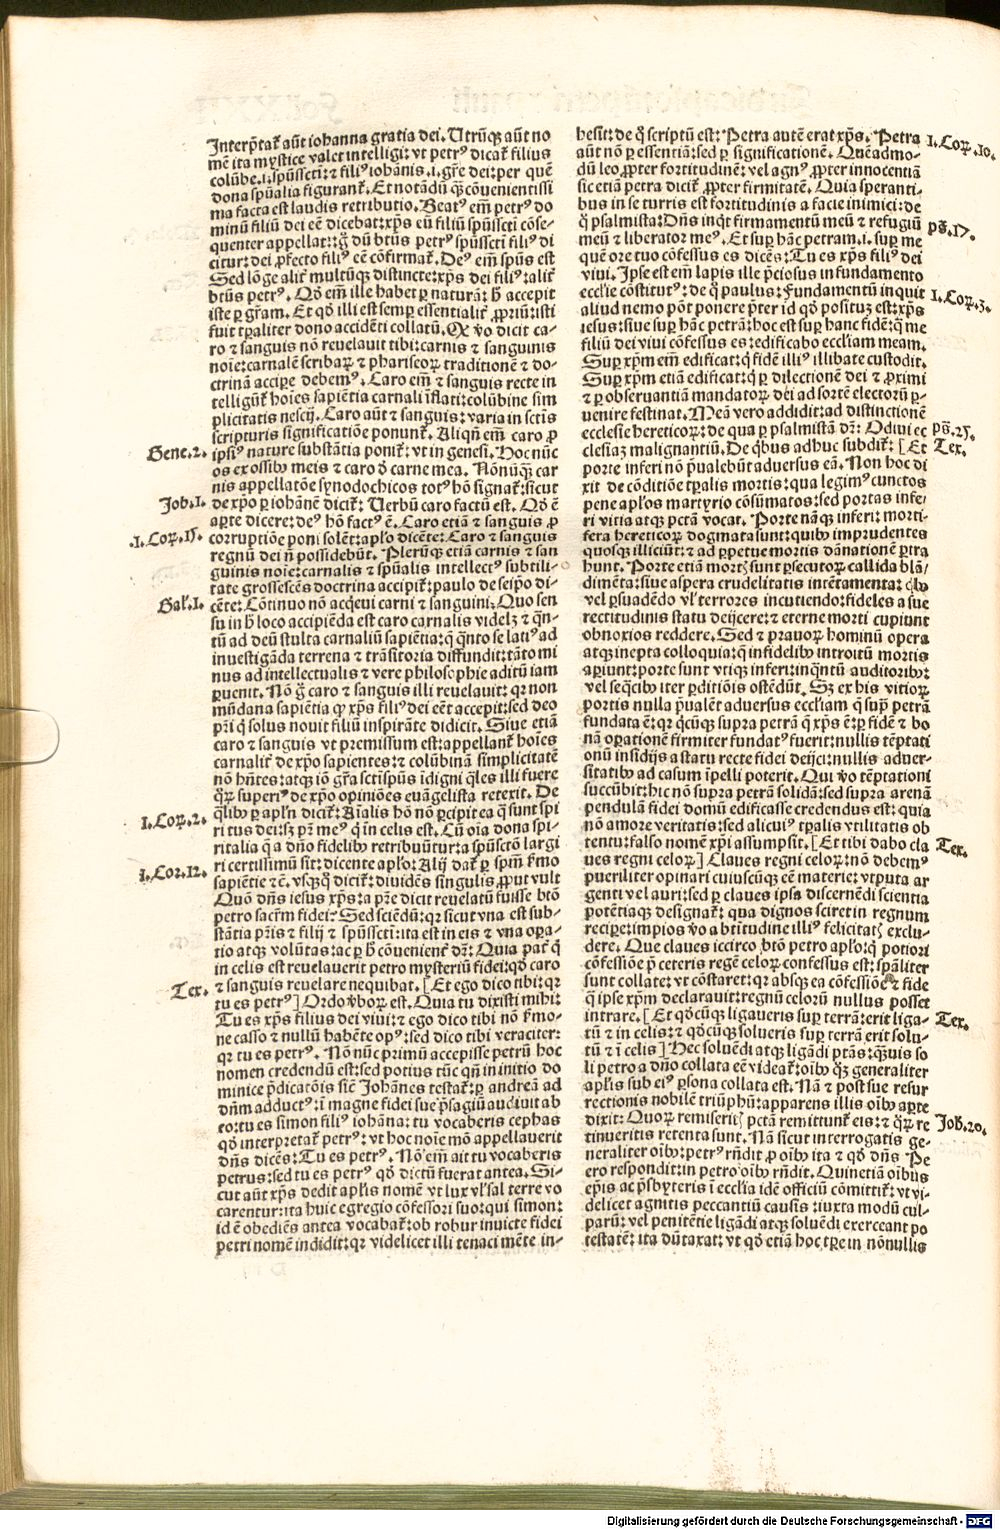 Interp̃tat᷑ aũt iohanna gratia dei. Utrũqꝫ aũt no
mẽ ita mystice valet intelligi: vt petrꝰ dicat᷑ filius
colũbe .i. spũssctĩ: ⁊ filiꝰ iohãnis .i. gr̃e dei: per quẽ
dona spũalia figurant᷑. Et notãdũ qꝫ cõuenientissi
ma facta est laudis retributio. Beatꝰ em̃ petrꝰ do
minũ filiũ dei eẽ dicebat: xp̃s eũ filiũ spũsscti cõse⸗
quenter appellat: g̊ dũ btũs petrꝰ spũsscti filiꝰ di
citur: dei ꝓfecto filiꝰ eẽ cõfirmat᷑. Deꝰ em̃ spũs est
Sed lõge alit᷑ multũqꝫ distincte: xp̃s dei filiꝰ: alit᷑
btũs petrꝰ. Qđ em̃ ille habet ꝑ naturã: h̃ accepit
iste ꝑ gr̃am. Et qđ illi est semꝑ essentialit᷑ ꝓpriũ: isti
fuit tꝑaliter dono accidẽti collatũ. Qď v̊o dicit ca⸗
ro ⁊ sanguis nõ reuelauit tibi: carnis ⁊ sanguinis
noĩe: carnalẽ scribaꝝ ⁊ phariseoꝝ traditionẽ ⁊ do⸗
ctrinã accipe debemꝰ. Caro em̃ ⁊ sanguis recte in
telligũt᷑ hoĩes sapiẽtia carnali ĩflati: colũbine sim
plicitatis nescij. Caro aũt ⁊ sanguis: varia in sctĩs
scripturis significatiõe ponunt᷑. Aliqñ em̃ caro ꝓ
Gene.2. ipsiꝰ nature substãtia ponit᷑: vt in genesi. Hoc nũc
os ex ossibꝰ meis ⁊ caro đ carne mea. Nõnũqꝫ car
nis appellatõe synodochicos totꝰ hõ signat᷑: sicut
Joh.1. de xp̃o ꝑ iohãnẽ dicit᷑: Uerbũ caro factũ est. Qđ ẽ
aꝑte dicere: deꝰ hõ factꝰ ẽ. Caro etiã ⁊ sanguis ꝓ
.1.Coꝝ.15. corruptiõe poni solẽt: apl̃o dicẽte: Caro ⁊ sanguis
regnũ dei ñ possidebũt. Plerũqꝫ etiã carnis ⁊ san
guinis noĩe: carnalis ⁊ spũalis intellectꝰ subtili⸗
tate grossescẽs doctrina accipit᷑: paulo de seip̃o di⸗
Gal᷑.1. cẽte: Cõtinuo nõ acq̃eui carni ⁊ sanguini. Quo sen
su in h̊ loco accipiẽda est caro carnalis videlꝫ ⁊ q̃n⸗
tũ ad deũ stulta carnaliũ sapiẽtia: q̃ q̃nto se latiꝰ ad
inuestigãda terrena ⁊ trãsitoria diffundit: tãto mi
nus ad intellectualis ⁊ vere philosophie aditũ iam
ꝑuenit. Nõ g̊ caro ⁊ sanguis illi reuelauit: qꝛ non
mũdana sapiẽtia ꝙ xp̃s filiꝰ dei eẽt accepit: sed deo
pr̃i q̊ solus nouit filiũ inspirãte didicit. Siue etiã
caro ⁊ sanguis vt premissum est: appellant᷑ hoĩes
carnalit᷑ de xp̃o sapientes: ⁊ colũbinã simplicitatẽ
nõ hñtes: atqꝫ iõ gr̃a sctĩspũs ĩdigni q̃les illi fuere
q̃ꝝ superiꝰ de xp̃o opiniões euãgelista retexit. De
q̃libꝫ ꝑ apl̃m dicit᷑: Aĩalis hõ nõ ꝑcipit ea q̃ sunt spi
1.Coꝝ.2. ritus dei: sꝫ pr̃ meꝰ q̊ in celis est. Cũ oĩa dona spi⸗
ritalia q̃ a dño fidelibꝫ retribuũtur: a spũsctõ largi
1.Cor.12. ri certissimũ sit: dicente apl̃o: Alij dat᷑ ꝑ spm̃ ẜmo
sapiẽtie ⁊ẽ. vsqꝫq̊ dicit᷑: diuidẽs singulis ꝓut vult
Quõ dñs iesus xp̃s: a pr̃e dicit reuelatũ fuisse btõ
petro sacr̃m fidei? Sed sciẽdũ: qꝛ sicut vna est sub⸗
stãtia pr̃is ⁊ filij ⁊ spũsscti: ita est in eis ⁊ vna oꝑa⸗
tio atqꝫ volũtas: ac ꝑ h̊ cõuenient᷑ dr̃: Quia pat᷑ q̊
in celis est reuelauerit petro mysteriũ fidei: qđ caro
Tex. ⁊ sanguis reuelare nequibat. [Et ego dico tibi: qꝛ
tu es petrꝰ] Ordo v̓boꝝ est. Quia tu dixisti mihi:
Tu es xp̃s filius dei viui: ⁊ ego dico tibi nõ ẜmo⸗
ne casso ⁊ nullũ habẽte opꝰ: sed dico tibi veraciter:
qꝛ tu es petrꝰ. Nõ nũc primũ accepisse petrũ hoc
nomen credendũ est: sed potius tũc qñ in initio do
minice p̃dicatõis sic̃ Johãnes testat᷑: ꝑ andreã ad
dñm adductꝰ: ĩ magne fidei sue p̃sagiũ audiuit ab
eo: tu es simon filiꝰ iohãna: tu vocaberis cephas
qđ interpretat᷑ petrꝰ: vt hoc noĩe mõ appellauerit
dñs dicẽs: Tu es petrꝰ. Nõ em̃ ait tu vocaberis
petrus: sed tu es petrꝰ qđ dictũ fuerat antea. Si⸗
cut aũt xp̃s dedit apl̃is nomẽ vt lux vl̓sal terre vo
carentur: ita huic egregio cõfessori suo: qui simon:
id ẽ obediẽs antea vocabat᷑: ob robur inuicte fidei
petri nomẽ indidit: qꝛ videlicet illi tenaci mẽte in⸗
hesit: de q̊ scriptũ est: Petra autẽ erat xp̃s. Petra 1.Coꝝ.10.
aũt nõ ꝑ essentiã: sed ꝑ significationẽ. Quẽadmo⸗
dũ leo ꝓpter fortitudinẽ: vel agnꝰ ꝓpter innocentiã
sic etiã petra dicit᷑ ꝓpter firmitatẽ. Quia speranti⸗
bus in se turris est fortitudinis a facie inimici: de
q̊ psalmista: Dñs inqt firmamentũ meũ ⁊ refugiũ ps̃.17.
meũ ⁊ liberator meꝰ. Et suꝑ hãc petram .i. suꝑ me
quẽ ore tuo cõfessus es dicẽs: Tu es xp̃s filiꝰ dei
viui. Ipse est em̃ lapis ille p̃ciosus in fundamento
eccl̃ie cõstitutꝰ: de q̊ paulus: Fundamentũ inquit 1.Coꝝ.3.
aliud nemo põt ponere p̃ter id qđ positũ est: xp̃s
iesus: siue suꝑ hãc petrã: hoc est suꝑ hanc fidẽ: q̃ me
filiũ dei viui cõfessus es: edificabo eccl̃iam meam.
Suꝑ xp̃m em̃ edificat: q̊ fidẽ illiꝰ illibate custodit.
Suꝑ xp̃m etiã edificat: q̊ ꝑ dilectionẽ dei ⁊ ꝓximi
⁊ ꝑ obseruantiã mandatoꝝ dei ad sortẽ electorũ ꝑ⸗
uenire festinat. Meã vero addidit: ad distinctionẽ
ecclesie hereticoꝝ: de qua ꝑ psalmistã dr̃: Odiui ec ps̃.25.
clesiaꝫ malignantiũ. De q̃bus adhuc subdit᷑: [Et Tex.
porte inferi nõ p̃ualebũt aduersus eã. Non hoc di
xit de cõditiõe tꝑalis mortis: qua legimꝰ cunctos
pene apl̃os martyrio cõsũmatos: sed portas infe⸗
ri vitia atqꝫ pctã vocat. Porte nãqꝫ inferi: morti⸗
fera hereticoꝝ dogmata sunt: quibꝫ imprudentes
quosqꝫ illiciũt: ⁊ ad ꝑpetue mortis dãnationẽ ꝑtra
hunt. Porte etiã mortꝭ sunt ꝑsecutoꝝ callida blã⸗
dimẽta: siue aspera crudelitatis intẽtamenta: q̃bꝫ
vel ꝑsuadẽdo vl̓ terrores incutiendo: fideles a sue
rectitudinis statu deijcere: ⁊ eterne morti cupiunt
obnoxios reddere. Sed ⁊ prauoꝝ hominũ opera
atqꝫ inepta colloquia: q̃ infidelibꝫ introitũ mortis
aꝑiunt: porte sunt vtiqꝫ inferi: inq̃ntũ auditoribꝫ:
vel seq̃cibꝫ iter ꝑditiõis ostẽdũt. Sꝫ ex his vitioꝝ
portis nulla p̃ualẽt aduersus eccl̃iam q̃ suꝑ petrã
fundata ẽ: qꝛ q̊cũqꝫ supra petrã q̃ xp̃s ẽ: ꝑ fidẽ ⁊ bo
nã oꝑationẽ firmiter fundatꝰ fuerit: nullis tẽptati
onũ insidijs a statu recte fidei deijci: nullis aduer⸗
sitatibꝫ ad casum ĩpelli poterit. Qui v̊o tẽptationi
succũbit: hic nõ supra petrã solidã: sed supra arenã
pendulã fidei domũ edificasse credendus est: quia
nõ amore veritatis: sed alicuiꝰ tꝑalis vtilitatis ob
tentu: falso nomẽ xp̃i assumpsit. [Et tibi dabo cla Tex.
ues regni celoꝝ] Claues regni celoꝝ: nõ debemꝰ
pueriliter opinari cuiuscũqꝫ eẽ materie: vtputa ar
genti vel auri: sed ꝑ claues ipsã discernẽdi scientiã
potẽtiaqꝫ designat᷑: qua dignos sciret in regnum
reciꝑe: impios v̊o a btitudine illiꝰ felicitatꝭ exclu⸗
dere. Que claues iccirco btõ petro apl̃o: q̊ potiori
cõfessiõe p̃ ceteris regẽ celoꝝ confessus est: sp̃aliter
sunt collate: vt cõstaret: qꝛ absqꝫ ea cõfessiõe ⁊ fide
q̃ ipse xp̃m declarauit: regnũ celorũ nullus posset
intrare. [Et qđcũqꝫ ligaueris suꝑ terrã: erit liga⸗ Tex.
tũ ⁊ in celis: ⁊ qđcũqꝫ solueris suꝑ terrã erit solu⸗
tũ ⁊ ĩ celis] Hec soluẽdi atqꝫ ligãdi ptãs: q̃uis so
li petro a dño collata eẽ videat᷑: oĩbꝫ qꝫ generaliter
apl̃is sub eiꝰ ꝑsona collata est. Nã ⁊ post sue resur
rectionis nobilẽ triũphũ: apparens illis oĩbꝫ aꝑte
dixit: Quoꝝ remiseritꝭ pctã remittunt᷑ eis: ⁊ q̊ꝝ re Joh̃.20.
tinueritis retenta sunt. Nã sicut interrogatis ge⸗
neraliter oĩbꝫ: petrꝰ rñdit ꝓ oĩbꝫ ita ⁊ qđ dñs Pe
ero respondit: in petro oĩbꝫ rñdit. Quinetiã oĩbus
ep̃is ac p̃sbyteris ĩ eccl̃ia idẽ officiũ cõmittit᷑: vt vi⸗
delicet agnitis peccantiũ causis: iuxta modũ cul⸗
parũ: vel penitẽtie ligãdi atqꝫ soluẽdi exerceant po
testatẽ: ita dũtaxat: vt qđ etiã hoc tꝑe in nõnullis
Digitalisierung gefördert durch die Deutsche Forschungsgemeinschaft - DFG